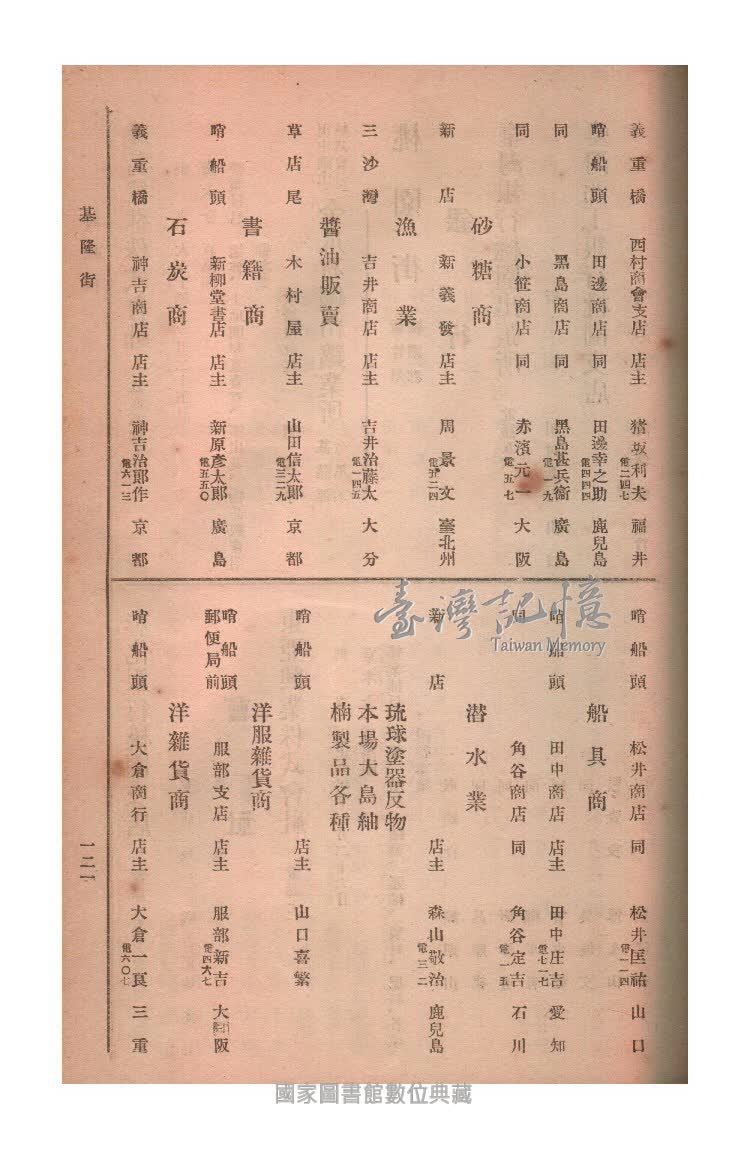 義重橋 西村商會支店 店主 猪坂利夫 電二四七 福井
哨船頭 田邊商店 同 田邊幸之助 電四四四 鹿兒島
同 黑島商店 同 黑島甚兵衞 電一九 廣島
同 小笹商店 同 赤濱元一 電五七 大阪
砂糖商
新店 新義發 店主 周景文 電五二四 臺北州
漁業
三沙灣 吉井商店 店主 吉井治藤太 電一四五 大分
醬油販賣
草店尾 木村屋 店主 山田信太郎 電三二九 京都
書籍商
哨船頭 新柳堂書店 店主 新原彥太郎 電五五〇 廣島
石炭商
義重橋 神吉商店 店主 神吉治郎作 電六一三 京都
哨船頭 松井商店 同 松井匡祐 電一一四 山口
船具商
哨船頭 田中商店 店主 田中庄吉 電七一七 愛知
同 角谷商店 同 角谷定吉 電一五 石川
潜水業
新店 店主 森山敬治 電三二 鹿兒島
琉球塗器反物
本場大島紬
楠製品各種
哨船頭 店主 山口喜繁
洋服雜貨商
哨船頭郵便局前 服部支店 店主 服部新吉 電四六七 大阪
洋雜貨商
哨船頭 大倉商行 店主 大倉一良 電六〇七 三重
基隆街
一二一
臺灣記憶
Taiwan Memory
國家圖書館數位典藏